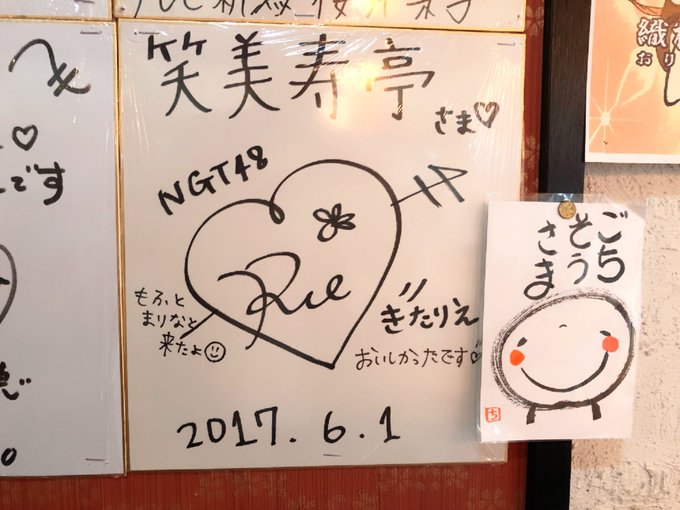 笑美寿亭
さま♡
NGT48
Rie
もふと
まりなと
来たよ☺
きたりえ
おいしかったです♡
2017.6.1
ごち
そう
さま
です
織
おり